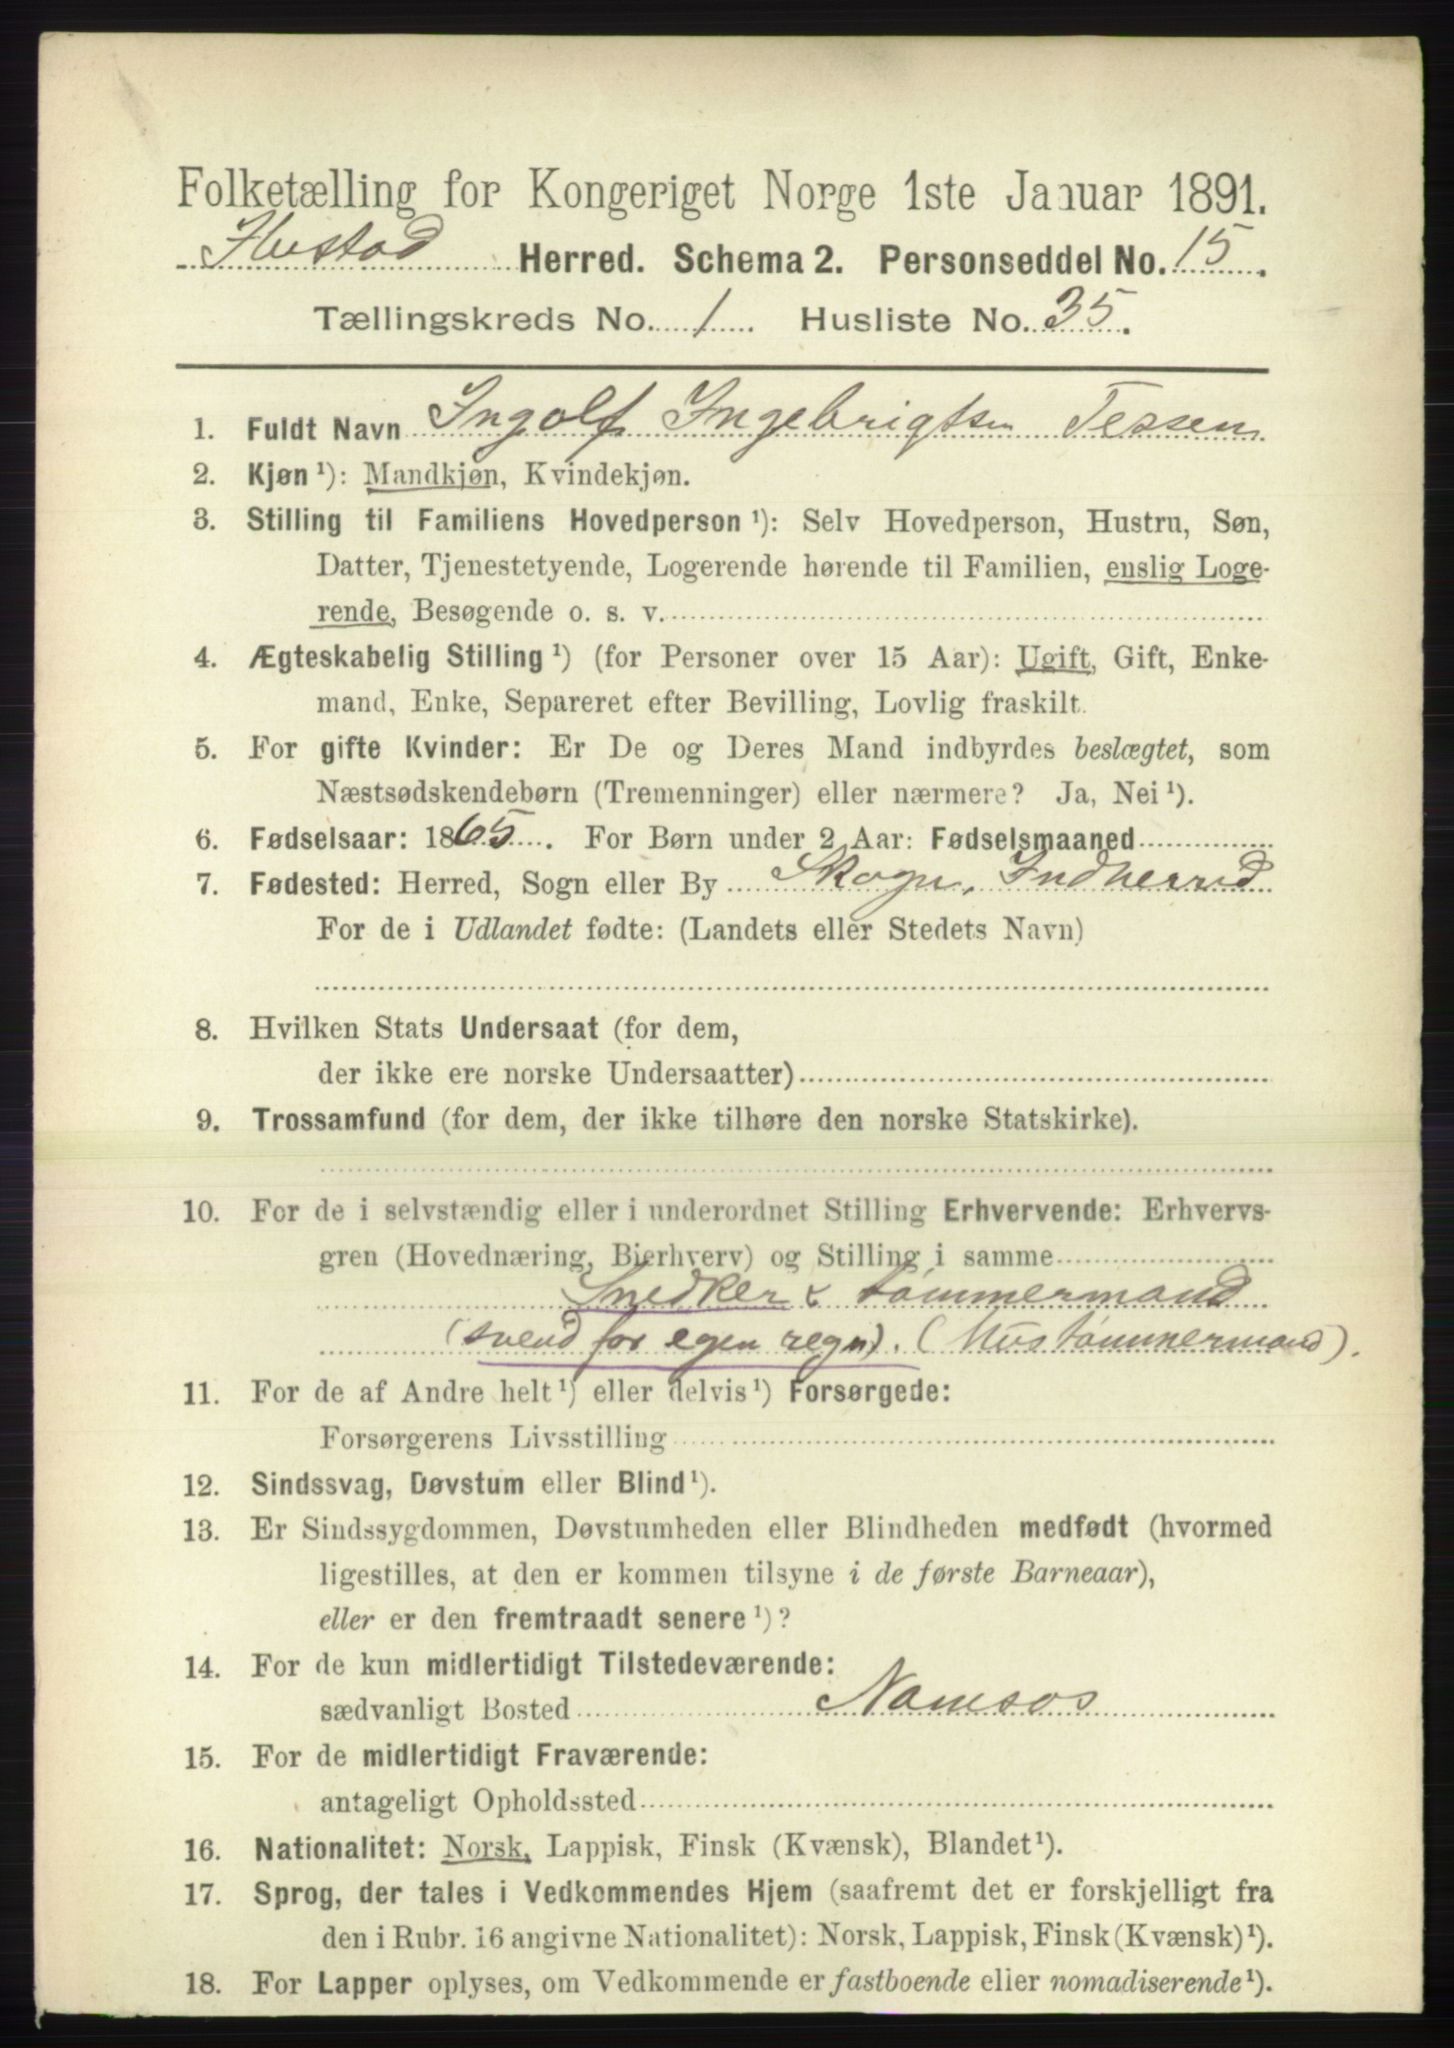 Folketælling for Kongeriget Norge 1ste Januar 1891.
Hustad Herred. Schema 2. Personseddel No. 15.
Tællingskreds No. 1. Husliste No. 35.
1. Fuldt Navn Ingolf Ingebrigtsen Tessem
2. Kjøn ¹): Mandkjøn, Kvindekjøn.
3. Stilling til Familiens Hovedperson ¹): Selv Hovedperson, Hustru, Søn,
Datter, Tjenestetyende, Logerende hørende til Familien, enslig Loge-
rende, Besøgende o. s. v.
4. Ægteskabelig Stilling ¹) (for Personer over 15 Aar): Ugift, Gift, Enke-
mand, Enke, Separeret efter Bevilling, Lovlig fraskilt.
5. For gifte Kvinder: Er De og Deres Mand indbyrdes beslægtet, som
Næstsødskendebørn (Tremenninger) eller nærmere? Ja, Nei ¹).
6. Fødselsaar: 1865. For Børn under 2 Aar: Fødselsmaaned
7. Fødested: Herred, Sogn eller By Skogn, Indherred
For de i Udlandet fødte: (Landets eller Stedets Navn)
8. Hvilken Stats Undersaat (for dem,
der ikke ere norske Undersaatter)
9. Trossamfund (for dem, der ikke tilhøre den norske Statskirke).
10. For de i selvstændig eller i underordnet Stilling Erhvervende: Erhvervs-
gren (Hovednæring, Bierhverv) og Stilling i samme
Snedker & tømmermand
(svend for egen regn). (Hustømmermand).
11. For de af Andre helt ¹) eller delvis ¹) Forsørgede:
Forsørgerens Livsstilling
12. Sindssvag, Døvstum eller Blind ¹).
13. Er Sindssygdommen, Døvstumheden eller Blindheden medfødt (hvormed
ligestilles, at den er kommen tilsyne i de første Barneaar),
eller er den fremtraadt senere ¹)?
14. For de kun midlertidigt Tilstedeværende:
sædvanligt Bosted Namsos
15. For de midlertidigt Fraværende:
antageligt Opholdssted
16. Nationalitet: Norsk, Lappisk, Finsk (Kvænsk), Blandet ¹).
17. Sprog, der tales i Vedkommendes Hjem (saafremt det er forskjelligt fra
den i Rubr. 16 angivne Nationalitet): Norsk, Lappisk, Finsk (Kvænsk) ¹).
18. For Lapper oplyses, om Vedkommende er fastboende eller nomadiserende ¹).